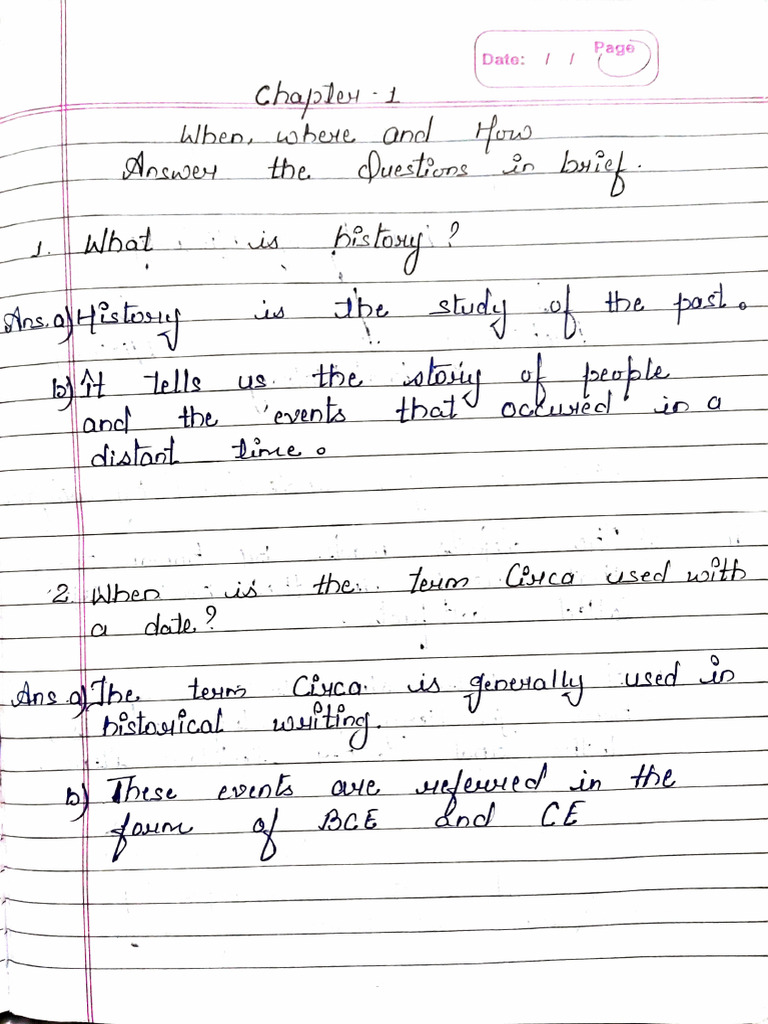 Date: / / Page
Chapter - 1
When, where and How
Answer the Questions in brief.
1. What is history?
Ans. a) History is the study of the past.
b) It tells us the story of people
and the events that occured in a
distant time.
2. When is the term Circa used with
a date?
Ans a) The term Circa is generally used in
historical writing.
b) These events are referred in the
form of BCE and CE